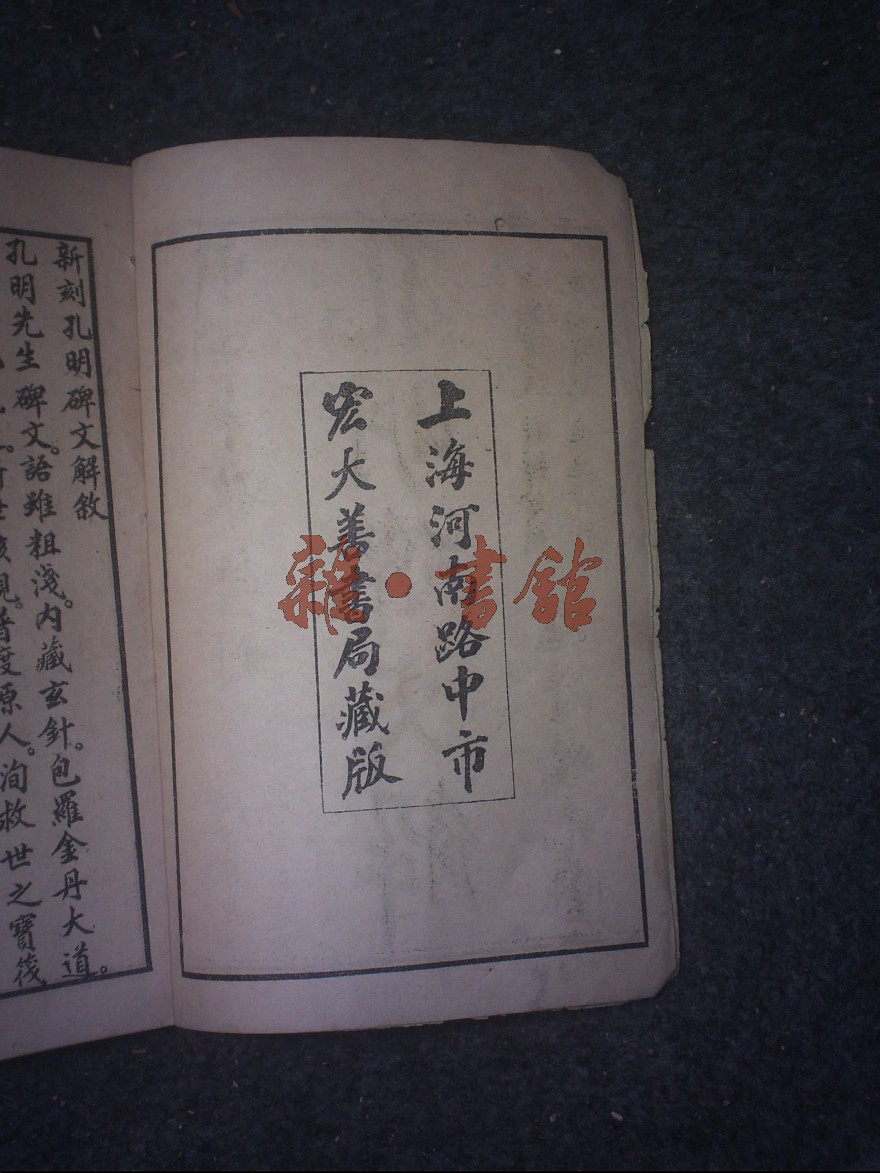 上海河南路中市
宏大善書局藏版
雜·書館
新刻孔明碑文解敘
孔明先生碑文。語雖粗淺。內藏玄針。包羅金丹大道。
普度原人。洵救世之寶筏